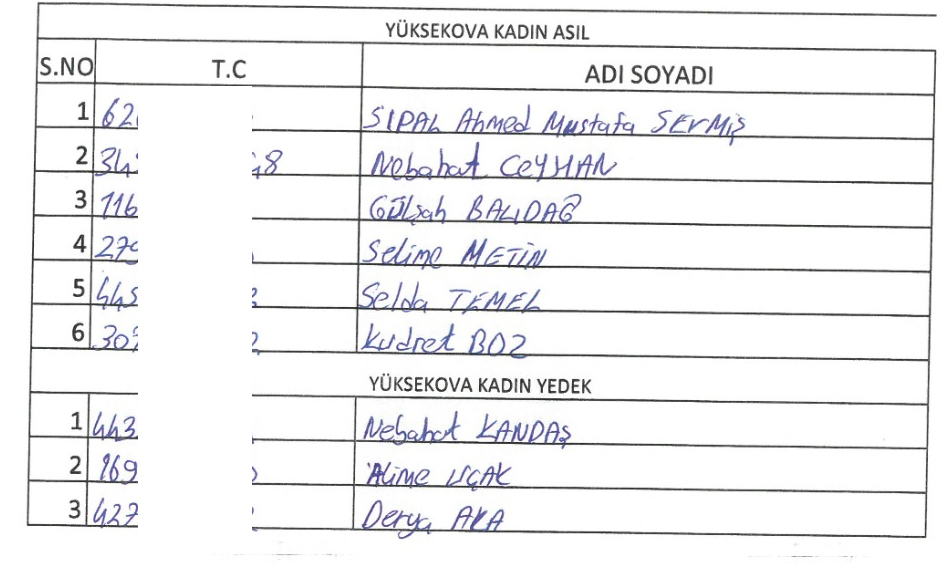 YÜKSEKOVA KADIN ASIL
S.NO T.C ADI SOYADI
1 62 SIPAL Ahmed Mustafa SERMİŞ
2 34 48 Nebahat CEYHAN
3 116 Gülşah BALIDAĞ
4 279 Selime METİN
5 445 8 Selda TEMEL
6 302 2 Kudret BOZ
YÜKSEKOVA KADIN YEDEK
1 443 Nebahat KANDAŞ
2 169 Alime UÇAK
3 427 2 Derya AKA